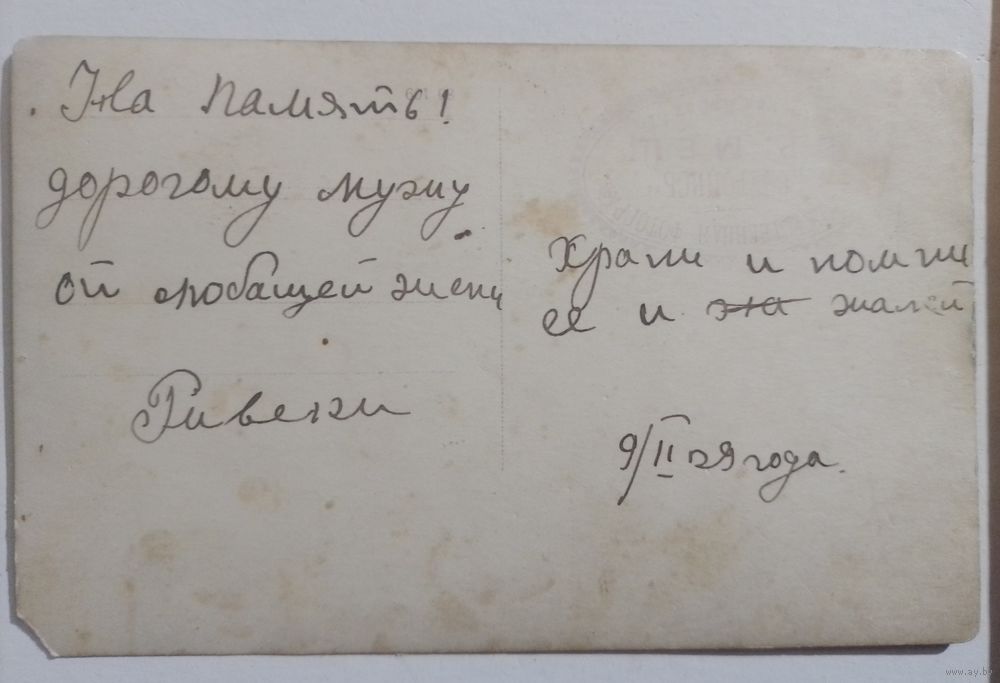 На память!
дорогому мужу
от любащей жены
Ривеки
Храни и помни
ее и жалей
9/II 29 года.
www.ay.by